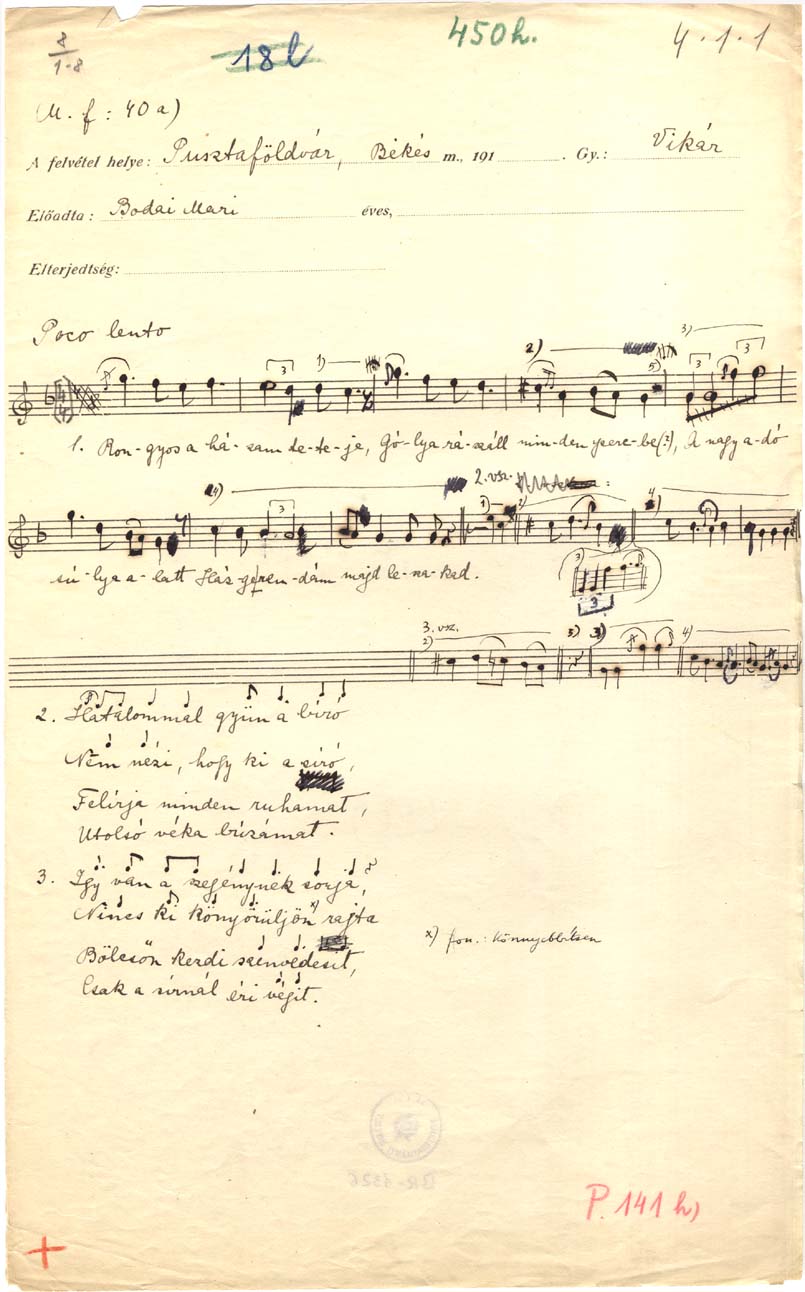 8
1-8
18l
450h.
4.1.1
(M. f : 40a)
A felvétel helye: Pusztaföldvár, Békés m., 191 . Gy.: Vikár
Előadta: Bodai Mari éves,
Elterjedtség:
Poco lento
3 1) 2) 5) 3) 3 3
1. Ron-gyos a há-zam te-te-je, Gó-lya rá-száll min-den este-be(?), A nagy a-dó
4) 3 2. vsz. 1) 4)
sú-lya a-latt Ház-geren-dám majd le-ra-kad.
3)
3
3. vsz.
2) 5) 3) 4)
2. Hatalommal gyün a bíró
Nem nézi, hogy ki a síró,
Felírja minden ruhamat,
Utolsó véka búzámat.
3. Így van a szegénynek sorja,
Nincs ki könyörüljön x) rajta
Bölcsőn kezdi szenvedésit,
Csak a sírnál éri végit.
x) fon.: Könnyebbítsen
BR-3326
P. 141 h)